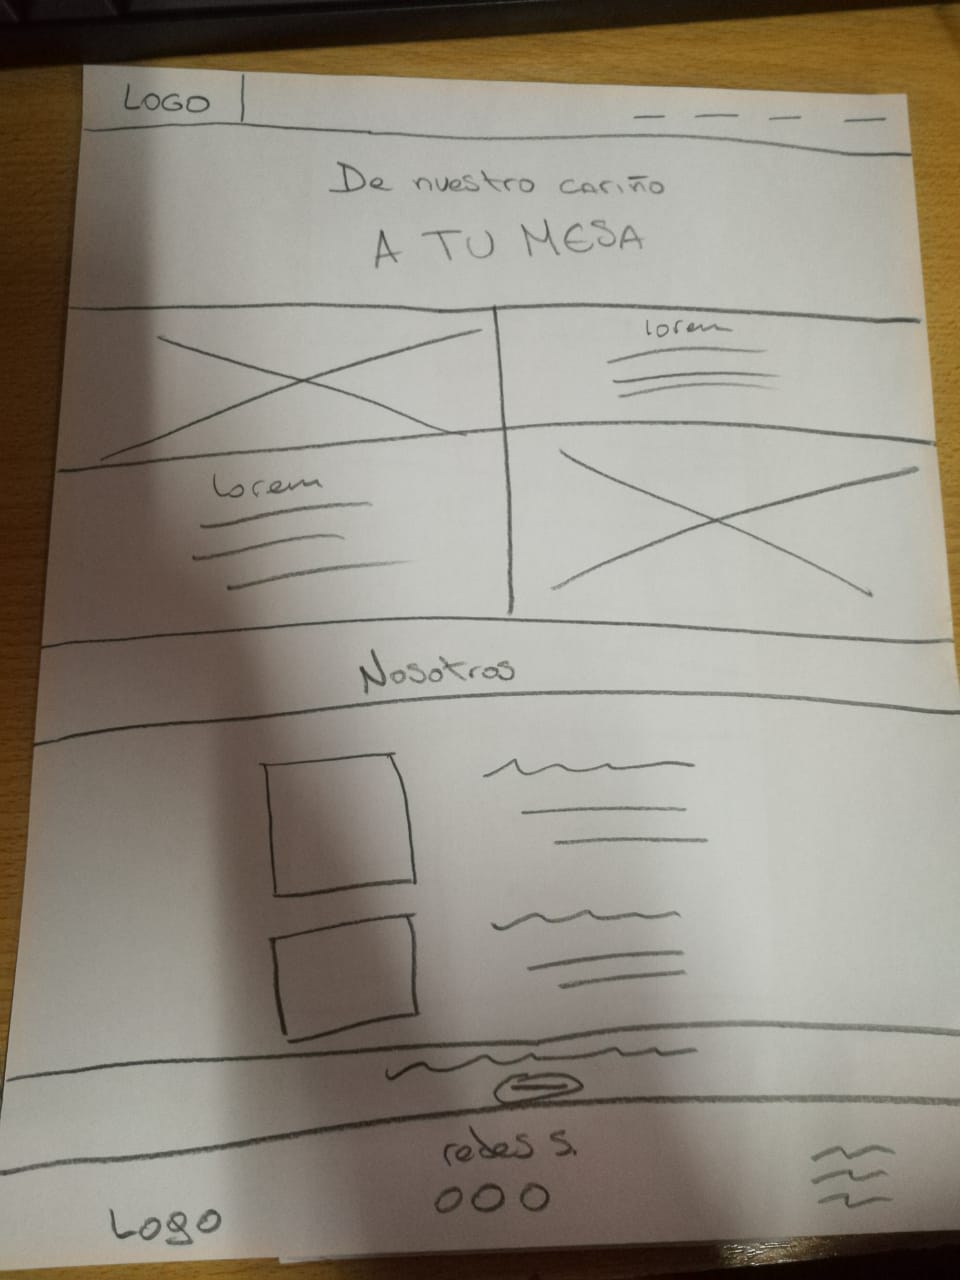 LOGO
De nuestro cariño
A TU MESA
lorem
Lorem
Nosotros
redes s.
Logo